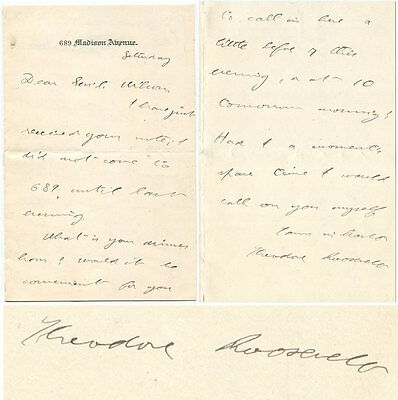 689 Madison Avenue.
Saturday
Dear
I have just
received your note; I
did not come to
689 until last
evening
What is your dinner
hour? Would it be
convenient for you
to call in here a
little before 8 this
evening, or at 10
tomorrow morning?
Had I a moments
spare time I would
call on you myself
Yours in haste
Theodore Roosevelt
Theodore Roosevelt